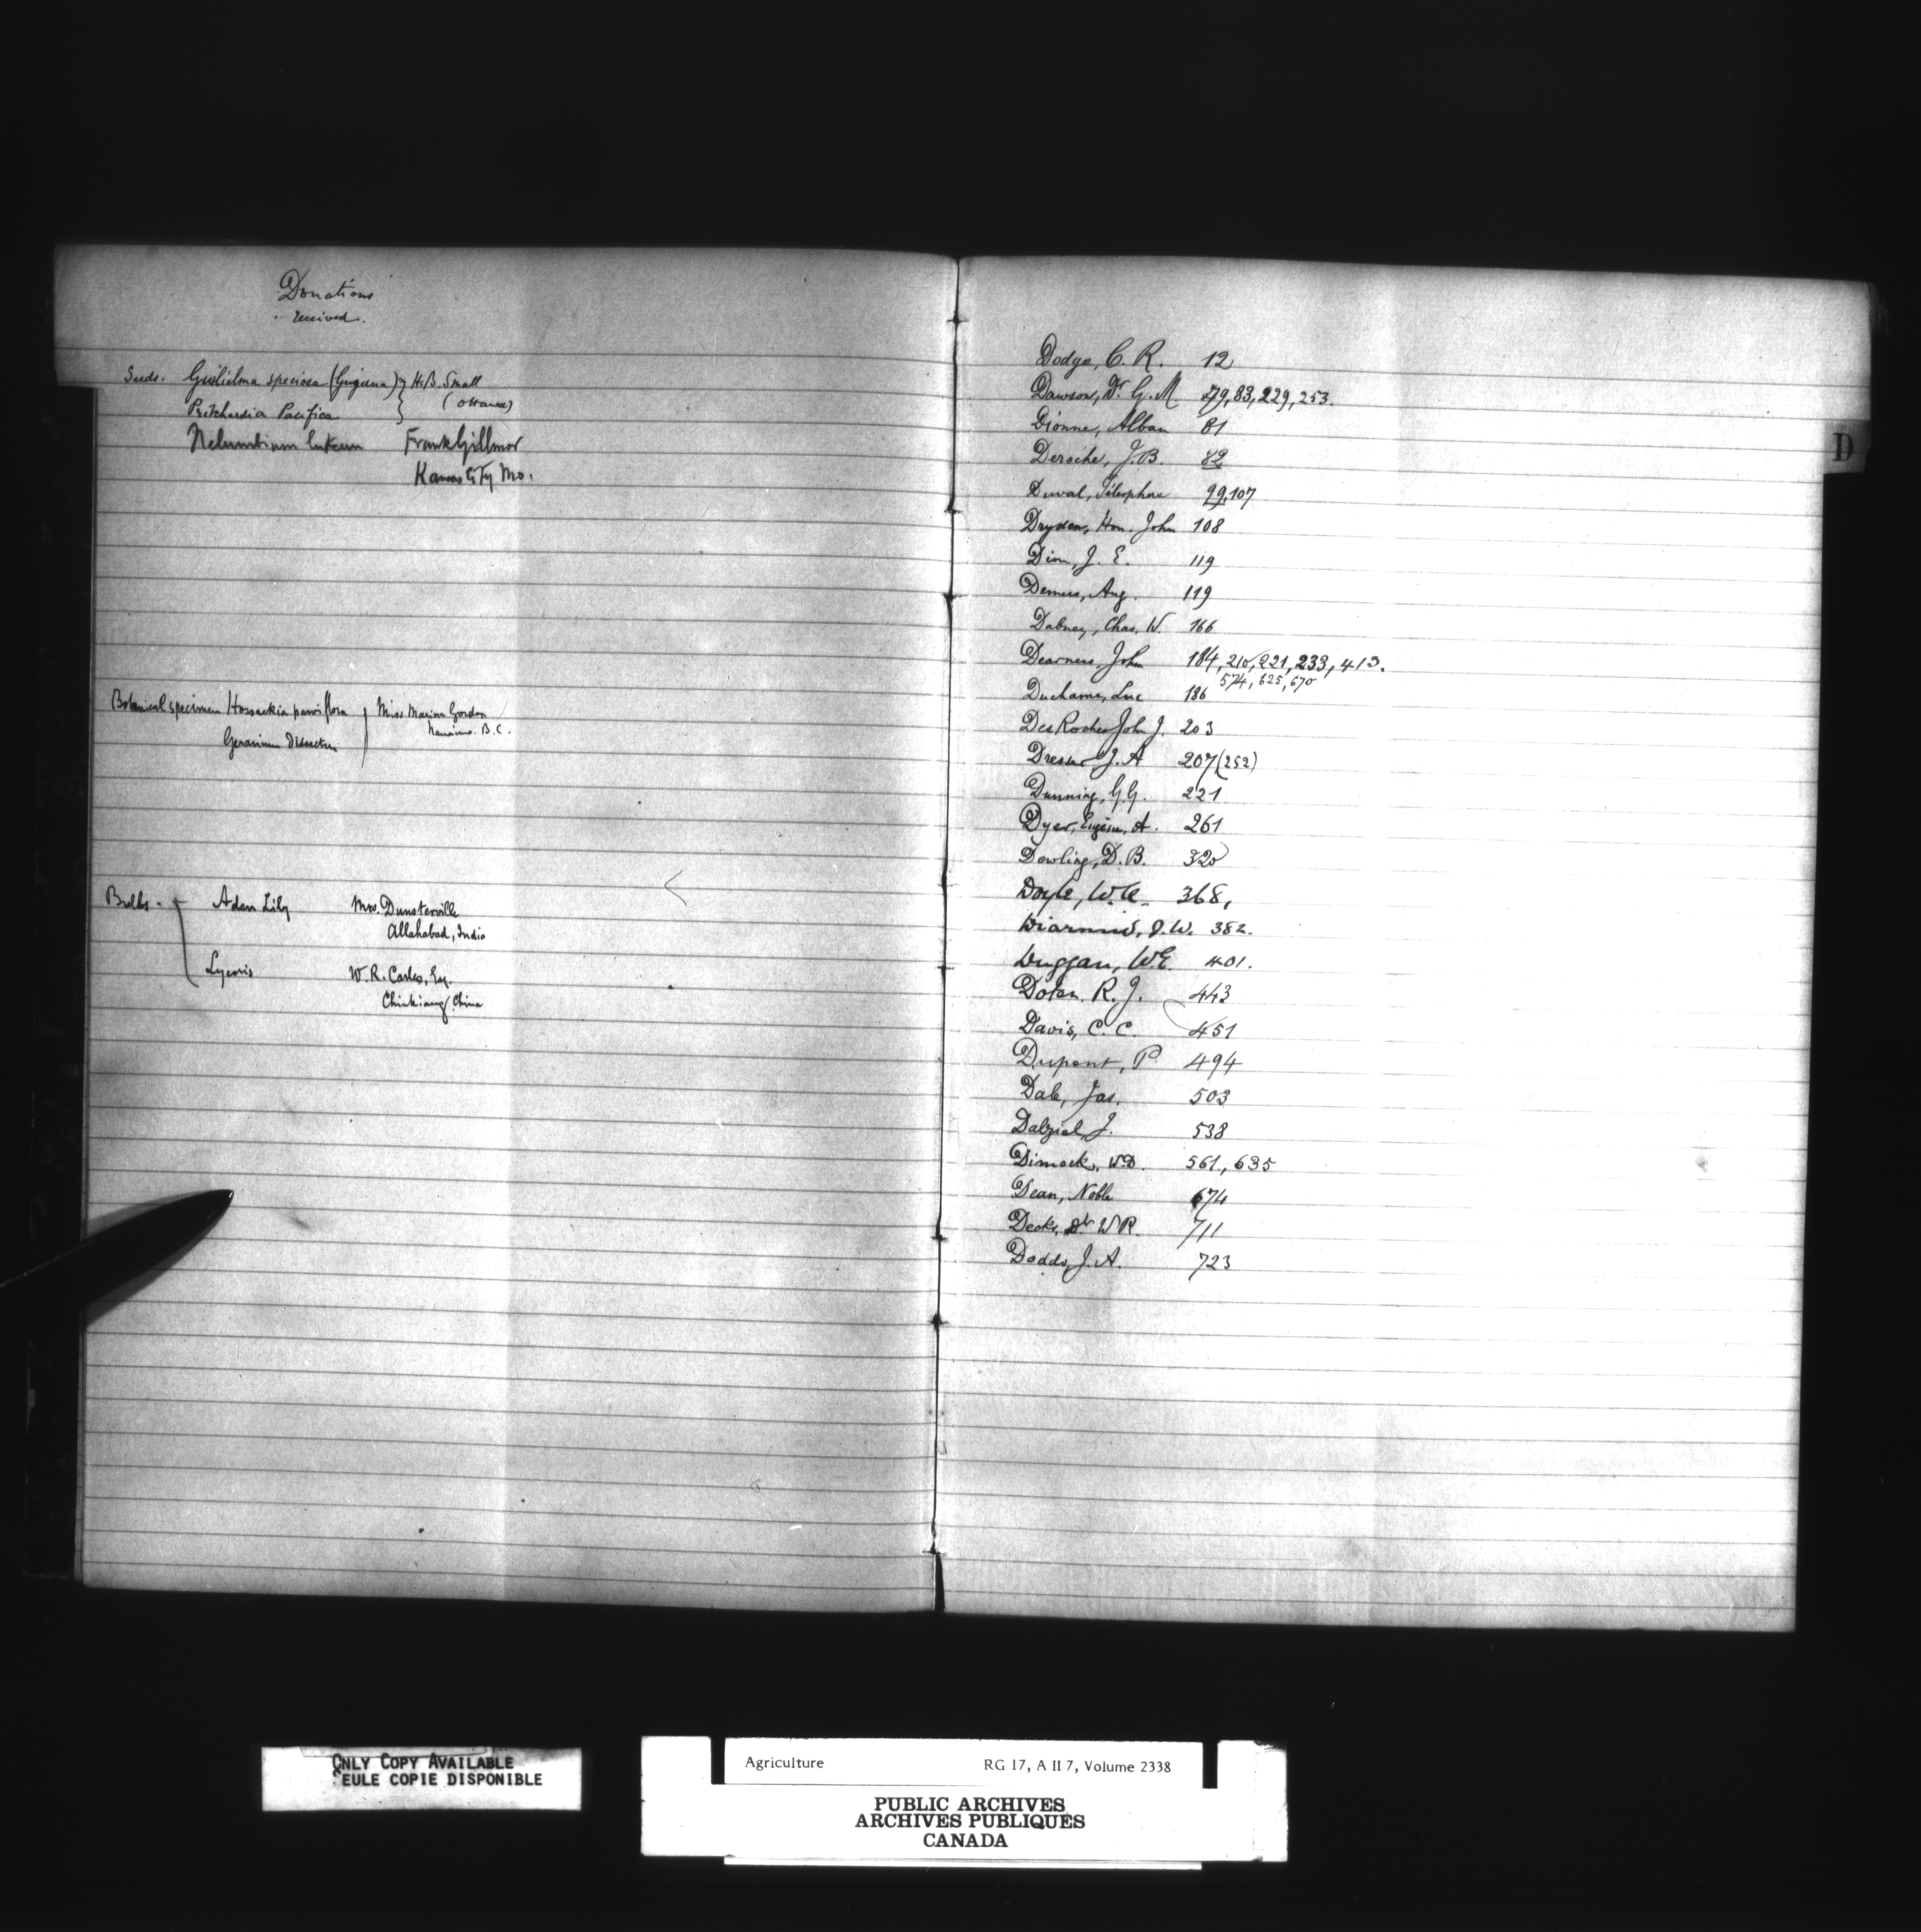 Donations
received.
Seeds. Guilielma speciosa (Guigana) } H.B. Small
Pritchardia Pacifica } (Ottawa)
Nelumbium luteum Frank Gillmor
Kansas City Mo.
Botanical specimen Hossackia parviflora } Miss Marion Gordon
Nanaimo. B.C.
Geranium dissectum
Bulbs - Adam Lily Mrs. Dunsterville
Allahabad, India
Lycoris W. R. Carles, Esq.
Chinkiang, China
Dodge, C. R. 12
Dawson, Dr. G. M. 79, 83, 229, 253.
Dionne, Alban 81
Deroche, J.B. 82
Duval, Télesphore 99, 107
Dryden, Hon. John 108
Dion, J. E. 119
Demers, Aug. 119
Dabney, Chas. W. 166
Dearness, John 184, 210, 221, 233, 413.
574, 625, 670
Ducharme, Luc 186
Des Roches John J. 203
Dresser J. A 207 (252)
Dunning, G.G. 221
Dyer, Eugène, A. 261
Dowling, D. B. 320
Doyle, W. 368,
J.W. 382.
Duggan, W.E. 401.
Dolan. R. J. 443
Davis, C. C. 451
Dupont, P. 494
Dale, Jas. 503
Dalziel, J. 538
Dimock, W.D. 561, 635
Dean, Noble 674
Deeks, Dr. W R. 711
Dodds, J. A. 723
D
ONLY COPY AVAILABLE
SEULE COPIE DISPONIBLE
Agriculture RG 17, A II 7, Volume 2338
PUBLIC ARCHIVES
ARCHIVES PUBLIQUES
CANADA